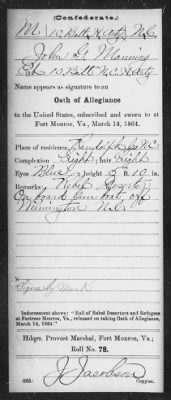 (Confederate.)
M 13 Batt N.C.
John L. Manning
Co. 13 Batt N.C.
Name appears as signature to an
Oath of Allegiance
to the United States, subscribed and sworn to at
Fort Monroe, Va., March 14, 1864.
Place of residence Randolph Co NC
Complexion Light; hair Light
Eyes Blue; height 5 ft 10 in
Remarks: Rebel
On board gun boat, off
Wilmington N.C.
Signs by mark
Indorsement shows: "Roll of Rebel Deserters and Refugees
at Fortress Monroe, Va., released on taking Oath of Allegiance,
March 14, 1864."
Hdqrs. Provost Marshal, Fort Monroe, Va;
Roll No. 78.
J Jacobson
Copyist.